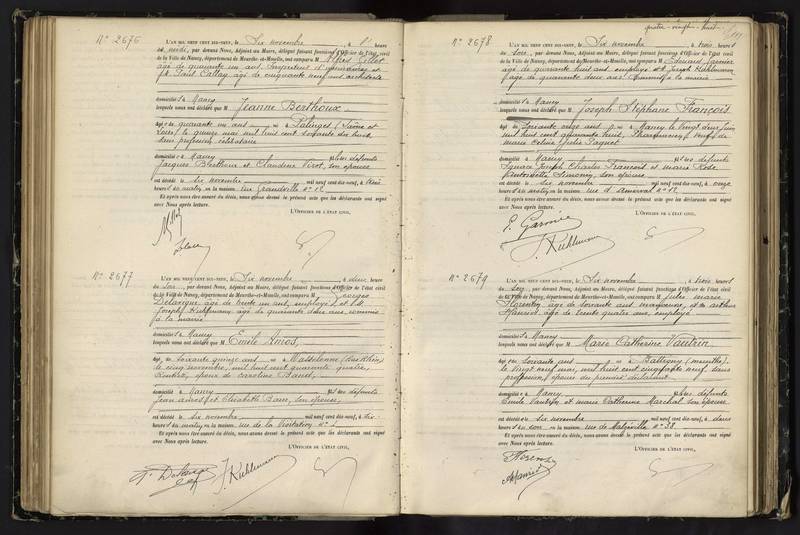 N° 2676
L'AN MIL NEUF CENT DIX-NEUF, le Six novembre, à heure
du , par devant Nous, Adjoint au Maire, délégué faisant fonctions d'Officier de l'état civil
de la Ville de Nancy, département de Meurthe-et-Moselle, ont comparu M
âgé de quarante un ans, et
Paul âgé de cinquante neuf ans
domiciliés à Nancy
lesquels nous ont déclaré que M Jeanne Berthoux
âgée de quarante un ans née à Palinges (Saône et
Loire) le quinze mai mil huit cent soixante dix huit,
sans profession, célibataire
domiciliée à Nancy fille des défunts
Jacques Berthoux et Claudine Virot, son épouse
est décédée le six novembre mil neuf cent dix-neuf, à
heures du matin, en la maison, rue Grandville n° 12
Et après nous être assuré du décès, nous avons dressé le présent acte que les déclarants ont signé
avec Nous après lecture.
L'OFFICIER DE L'ÉTAT CIVIL,
N° 2677
L'AN MIL NEUF CENT DIX-NEUF, le Six novembre, à deux heures
du soir, par devant Nous, Adjoint au Maire, délégué faisant fonctions d'Officier de l'état civil
de la Ville de Nancy, département de Meurthe-et-Moselle, ont comparu M Georges
Delarge âgé de trente un ans, employé et M
Joseph Kuhlmann âgé de quarante deux ans, commis
à la mairie
domiciliés à Nancy
lesquels nous ont déclaré que M Emile Amos,
âgé de soixante quinze ans né à Wasselonne (Bas Rhin)
le cinq novembre, mil huit cent quarante quatre,
Rentier, époux de Caroline
domicilié à Nancy fils des défunts
Jean Amos et Elisabeth , son épouse
est décédé le six novembre mil neuf cent dix-neuf, à dix
heures du matin, en la maison, rue de la Visitation n°
Et après nous être assuré du décès, nous avons dressé le présent acte que les déclarants ont signé
avec Nous après lecture.
L'OFFICIER DE L'ÉTAT CIVIL,
J. Kuhlmann
quatre-vingt-huit
N° 2678
L'AN MIL NEUF CENT DIX-NEUF, le Six novembre, à trois heures
du soir, par devant Nous, Adjoint au Maire, délégué faisant fonctions d'Officier de l'état civil
de la Ville de Nancy, département de Meurthe-et-Moselle, ont comparu M Edouard Garnier
âgé de quarante huit ans employé et M Joseph Kuhlmann
âgé de quarante deux ans, commis à la mairie
domiciliés à Nancy
lesquels nous ont déclaré que M Joseph Stéphane François
âgé de soixante onze ans né à Nancy le vingt deux juin
mil huit cent quarante huit, Pharmacien, veuf de
Marie Céline Julie Paquet
domicilié à Nancy fils des défunts
Ignace Joseph Charles François et Marie Rose
Antoinette Simonin, son épouse
est décédé le six novembre mil neuf cent dix-neuf, à onze
heures du matin, en la maison, rue d'Amerval n° 12
Et après nous être assuré du décès, nous avons dressé le présent acte que les déclarants ont signé
avec Nous après lecture.
L'OFFICIER DE L'ÉTAT CIVIL,
Garnier
J. Kuhlmann
N° 2679
L'AN MIL NEUF CENT DIX-NEUF, le Six novembre, à trois heures
du soir, par devant Nous, Adjoint au Maire, délégué faisant fonctions d'Officier de l'état civil
de la Ville de Nancy, département de Meurthe-et-Moselle, ont comparu M Jules Marie
âgé de soixante ans et M Arthur
âgé de trente quatre ans employé
domiciliés à Nancy
lesquels nous ont déclaré que M Marie Catherine Vautrin
âgée de soixante ans née à Battigny (Meurthe)
le vingt neuf mai, mil huit cent cinquante neuf, sans
profession, épouse du premier déclarant
domiciliée à Nancy fille des défunts
Vautrin, et Marie Catherine Marchal son épouse
est décédée le six novembre mil neuf cent dix-neuf, à deux
heures du soir, en la maison, rue de Malzéville n° 38
Et après nous être assuré du décès, nous avons dressé le présent acte que les déclarants ont signé
avec Nous après lecture.
L'OFFICIER DE L'ÉTAT CIVIL,